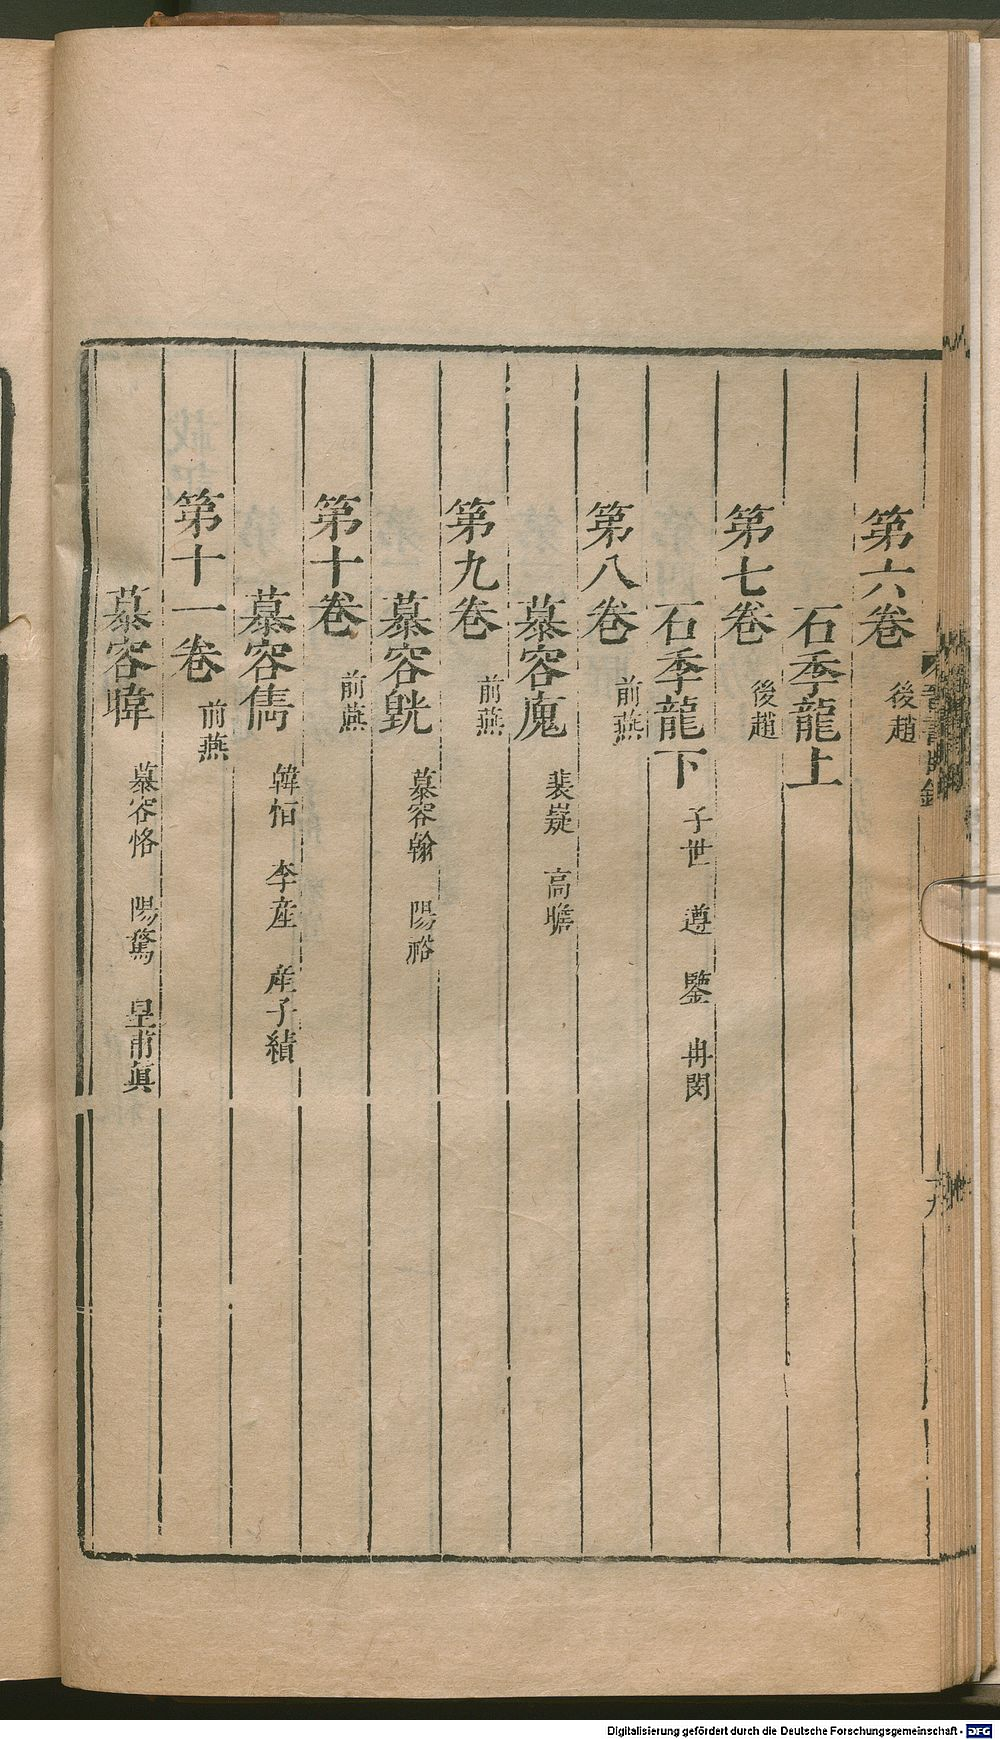 第六卷 後趙
石季龍上
第七卷 後趙
石季龍下 子世 遵 鑒 冉閔
第八卷 前燕
慕容廆 裴嶷 高瞻
第九卷 前燕
慕容皝 慕容翰 陽裕
第十卷 前燕
慕容儁 韓恒 李産 産子績
第十一卷 前燕
慕容暐 慕容恪 陽騖 皇甫眞
Digitalisierung gefördert durch die Deutsche Forschungsgemeinschaft - DFG